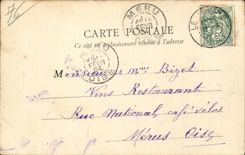 76
MERU
CARTE POSTALE
Ce côté est exclusivement réservé à l'adresse
Monsieur mme Bizet
Vins Restaurant
Rue National, café vélos
Mérus Oise